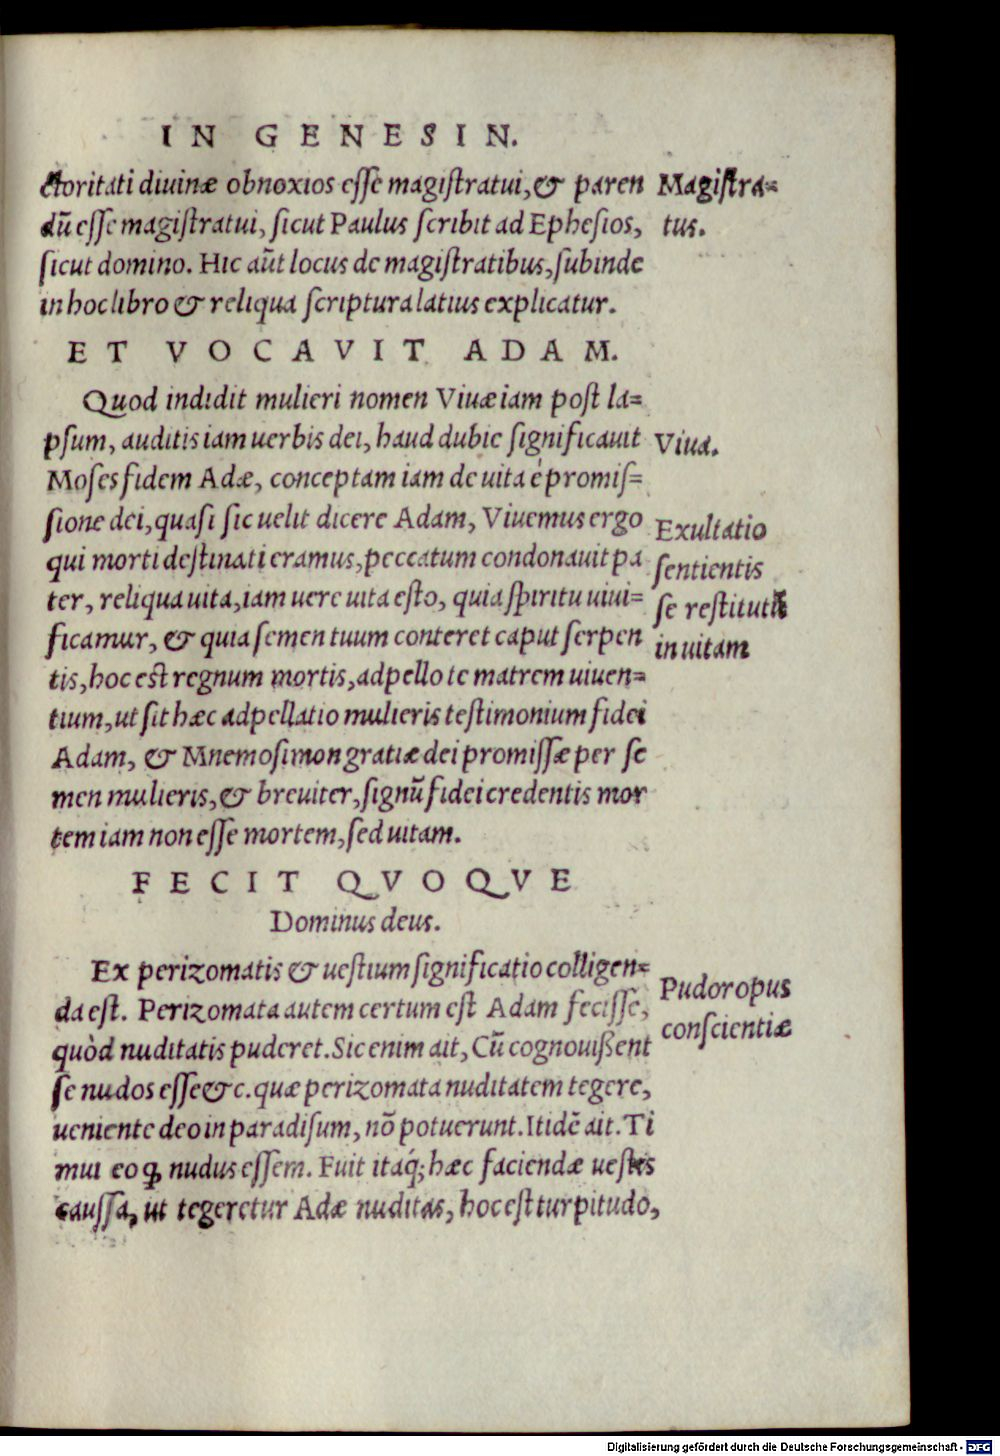 IN GENESIN.
ctoritati diuinæ obnoxios eſſe magiſtratui, & paren
dū eſſe magiſtratui, ſicut Paulus ſcribit ad Epheſios,
ſicut domino. Hic aūt locus de magiſtratibus, ſubinde
in hoc libro & reliqua ſcriptura latius explicatur.
Magiſtra=
tus.
ET VOCAVIT ADAM.
Quod indidit mulieri nomen Viuæ iam poſt la=
pſum, auditis iam uerbis dei, haud dubie ſignificauit
Moſes fidem Adæ, conceptam iam de uita è promiſ=
ſione dei, quaſi ſic uelit dicere Adam, Viuemus ergo
qui morti deſtinati eramus, peccatum condonauit pa
ter, reliqua uita, iam uere uita eſto, quia ſpiritu uiui=
ficamur, & quia ſemen tuum conteret caput ſerpen
tis, hoc eſt regnum mortis, adpello te matrem uiuen=
tium, ut ſit hæc adpellatio mulieris teſtimonium fidei
Adam, & Mnemoſimon gratiæ dei promiſſæ per ſe
men mulieris, & breuiter, ſignū fidei credentis mor
tem iam non eſſe mortem, ſed uitam.
Viua.
Exultatio
ſentientis
ſe reſtitutū
in uitam
FECIT QVOQVE
Dominus deus.
Ex perizomatis & ueſtium ſignificatio colligen=
da eſt. Perizomata autem certum eſt Adam feciſſe,
quòd nuditatis puderet. Sic enim ait, Cū cognouißent
ſe nudos eſſe &c. quæ perizomata nuditatem tegere,
ueniente deo in paradiſum, nō potuerunt. Itidē ait. Ti
mui eo ꝙ nudus eſſem. Fuit itaq́; hæc faciendæ ueſtis
cauſſa, ut tegeretur Adæ nuditas, hoc eſt turpitudo,
Pudor opus
conſcientiæ
Digitalisierung gefördert durch die Deutsche Forschungsgemeinschaft - DFG